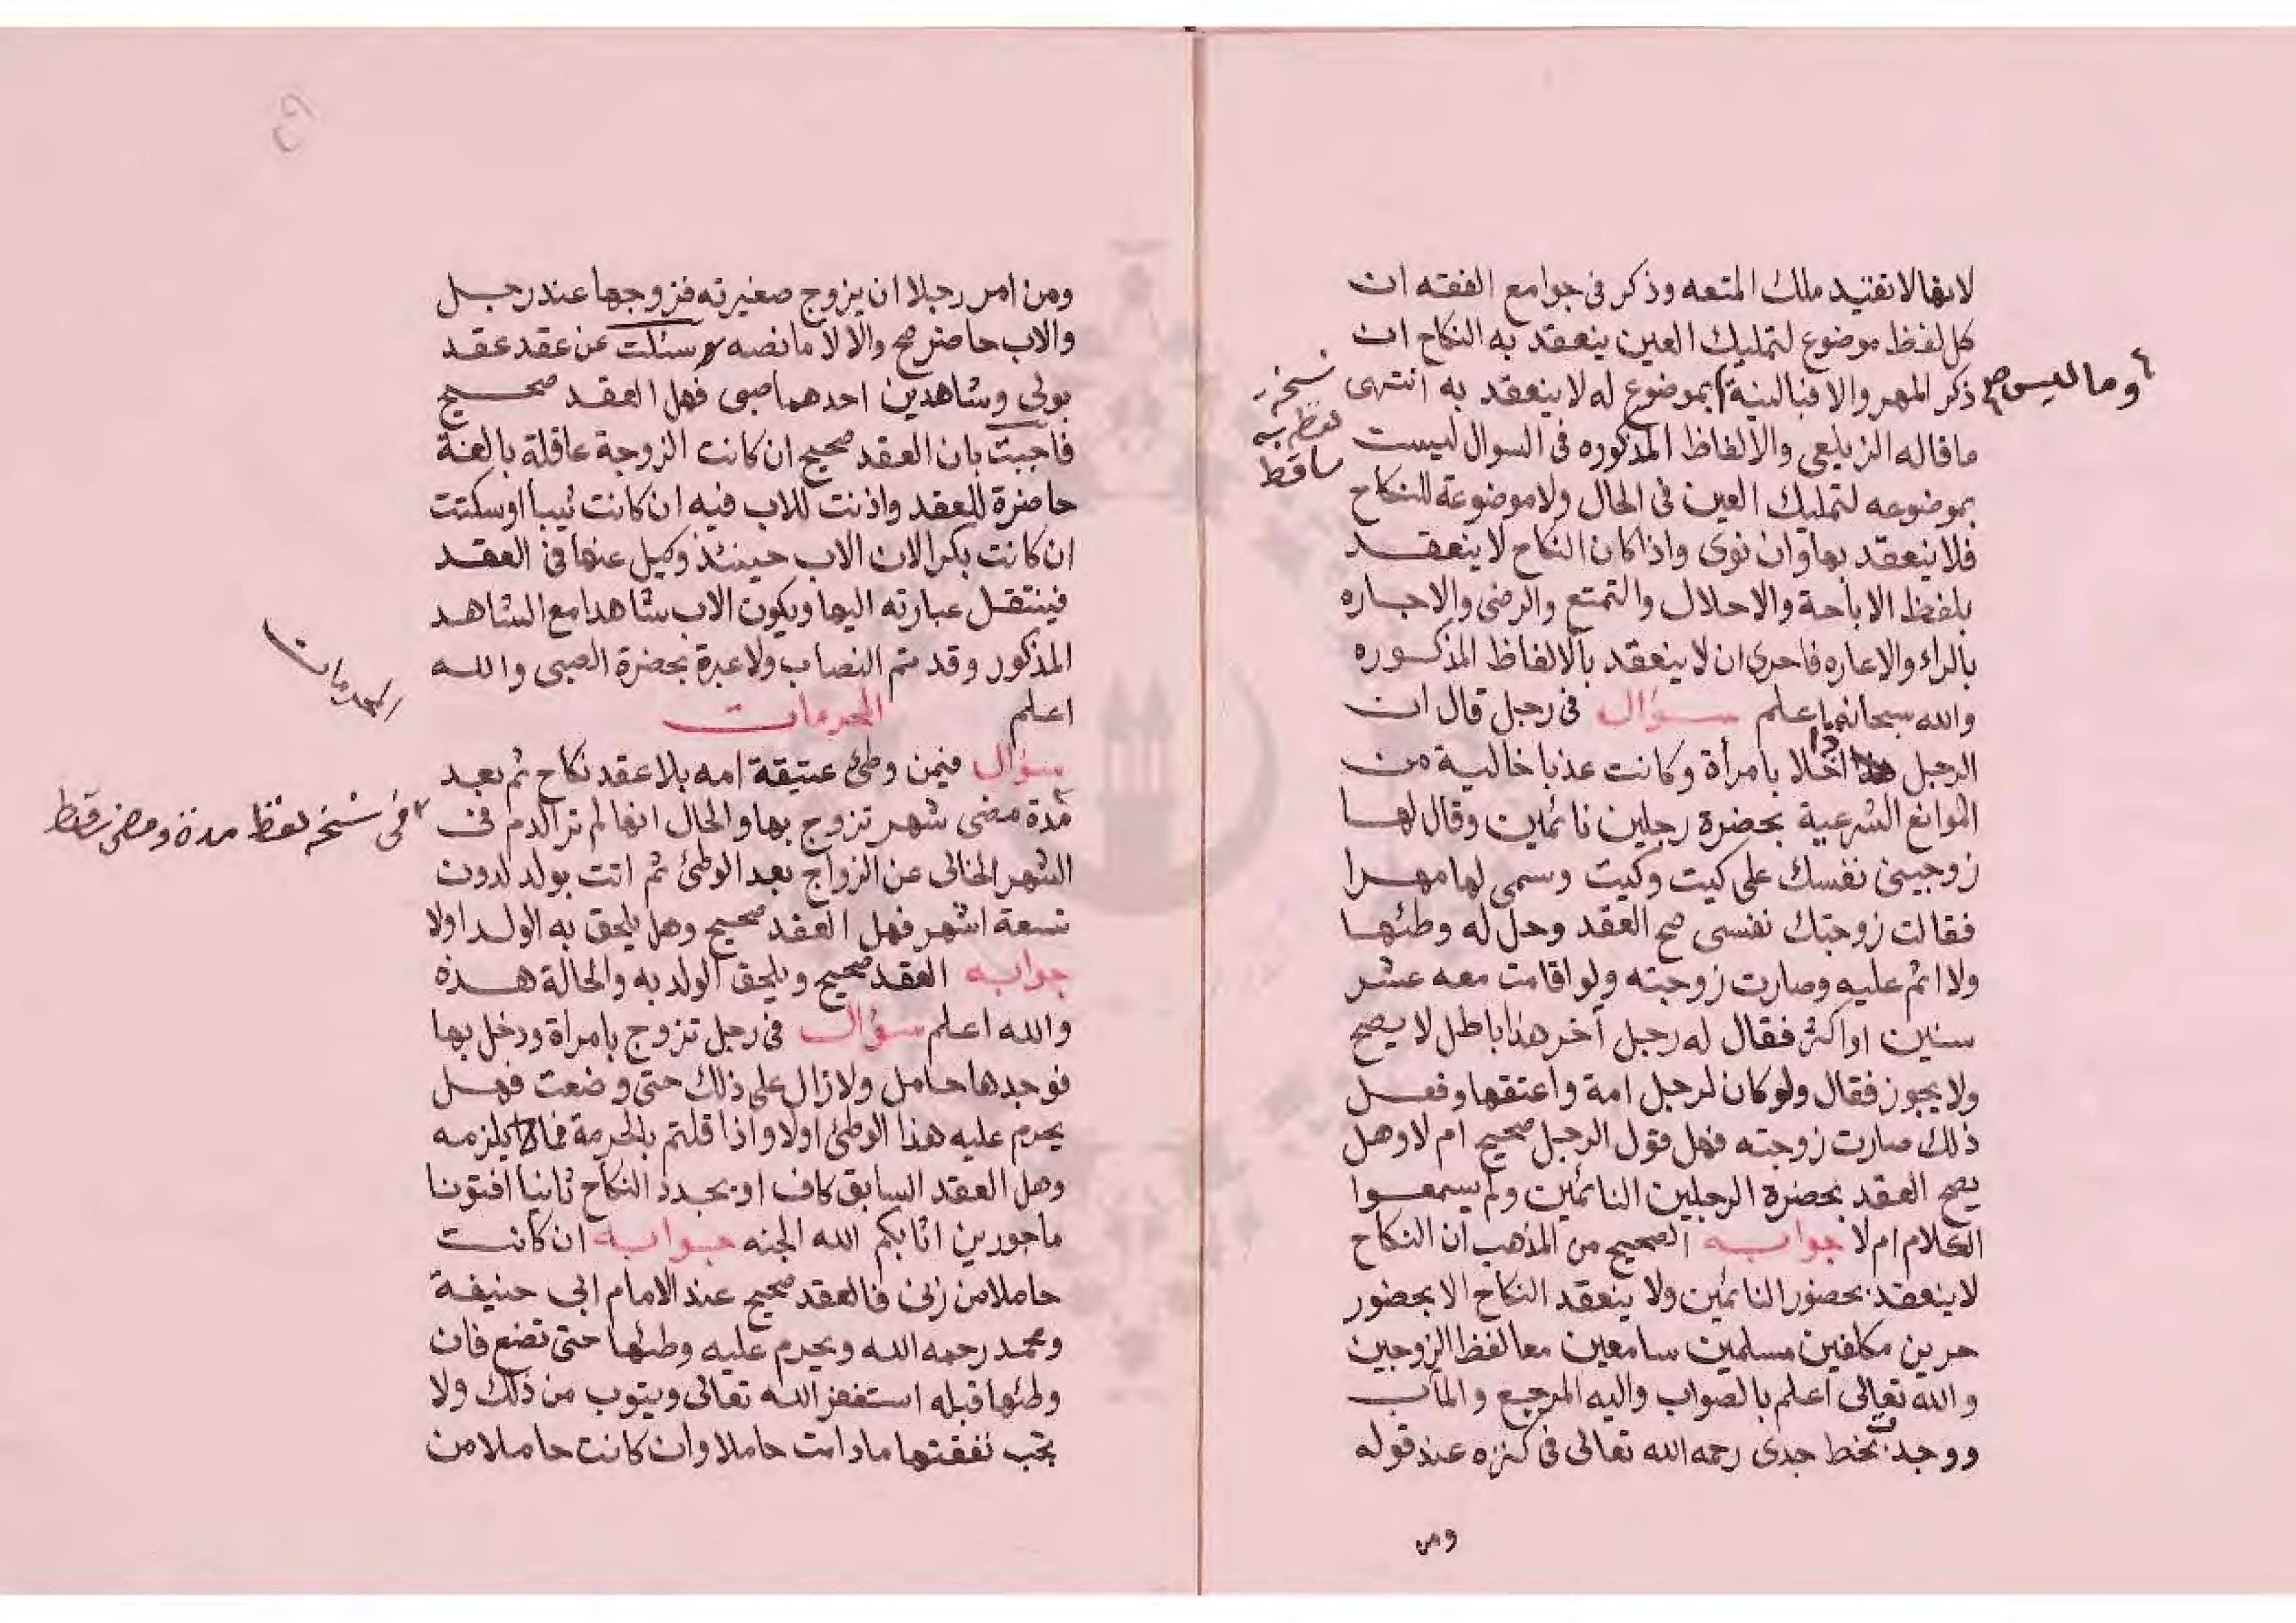 لانها لا تفيد ملك المتعه وذكر فى جوامع الفقه ان
كل لفظ موضوع لتمليك العين ينعقد به النكاح ان
ذكر المهر والا فبالنية بموضوع له لا ينعقد به انتهى
وما ليس صح
نسخه
لفظ به
ساقط
ما قاله الزيلعى والالفاظ المذكوره فى السوال ليست
بموضوعه لتمليك العين فى الحال ولا موضوعة للنكاح
فلا ينعقد بها وان نوى واذا كان النكاح لا ينعقد
بلفظ الاباحة والاحلال والتمتع والرضى والاجاره
بالراء والاعاره فاحرى ان لا ينعقد بالالفاظ المذكوره
والله سبحانه اعلم سؤال فى رجل قال ان
الرجل اذا خلا بامرأة وكانت عذبا خالية من
الموانع الشرعية بحضرة رجلين نائمين وقال لها
زوجينى نفسك على كيت وكيت وسمى لها مهرا
فقالت زوجتك نفسى صح العقد وحل له وطئها
ولا اثم عليه وصارت زوجته ولو اقامت معه عشر
سنين او اكثر فقال له رجل آخر هذا باطل لا يصح
ولا يجوز فقال ولو كان لرجل امة واعتقها وفعل
ذلك صارت زوجته فهل قول الرجل صحيح ام لا وهل
يصح العقد بحضرة الرجلين النائمين ولم يسمعوا
الكلام ام لا جوابه الصحيح من المذهب ان النكاح
لا ينعقد بحضور النائمين ولا ينعقد النكاح الا بحضور
حرين مكلفين مسلمين سامعين معا لفظ الزوجين
والله تعالى اعلم بالصواب واليه المرجع والمآب
ووجدت بخط جدى رحمه الله تعالى فى كنزه عند قوله
ومن
ومن امر رجلا ان يزوج صغيرته فزوجها عند رجل
والاب حاضر صح والا لا ما نصه سئلت عن عقد عقد
بولى وشاهدين احدهما صبى فهل العقد صحيح
فاجبت بان العقد صحيح ان كانت الزوجة عاقلة بالغة
حاضرة للعقد واذنت للاب فيه ان كانت ثيبا او سكتت
ان كانت بكرا لان الاب حينئذ وكيل عنها فى العقد
فينتقل عبارته اليها ويكون الاب شاهدا مع الشاهد
المذكور وقد تم النصاب ولا عبرة بحضرة الصبى والله
اعلم المحرمات
المحرمات
سؤال فيمن وطئ عتيقة امه بلا عقد نكاح ثم بعد
مدة مضى شهر تزوج بها والحال انها لم تر الدم فى
فى نسخه لفظ مدة ومضى سقط
الشهر الخالى عن الزواج بعد الوطئ ثم اتت بولد لدون
تسعة اشهر فهل العقد صحيح وهل يلحق به الولد اولا
جوابه العقد صحيح ويلحق الولد به والحالة هذه
والله اعلم سؤال فى رجل تزوج بامراة ودخل بها
فوجدها حامل ولا زال على ذلك حتى وضعت فهل
يحرم عليه هذا الوطئ اولا واذا قلتم بالحرمة فماذا يلزمه
وهل العقد السابق كاف او يجدد النكاح ثانيا افتونا
ماجورين اثابكم الله الجنه جوابه ان كانت
حاملا من زنى فالعقد صحيح عند الامام ابى حنيفة
ومحمد رحمه الله ويحرم عليه وطئها حتى تضع فان
وطئها قبله استغفر الله تعالى ويتوب من ذلك ولا
تجب نفقتها مادامت حاملا وان كانت حاملا من